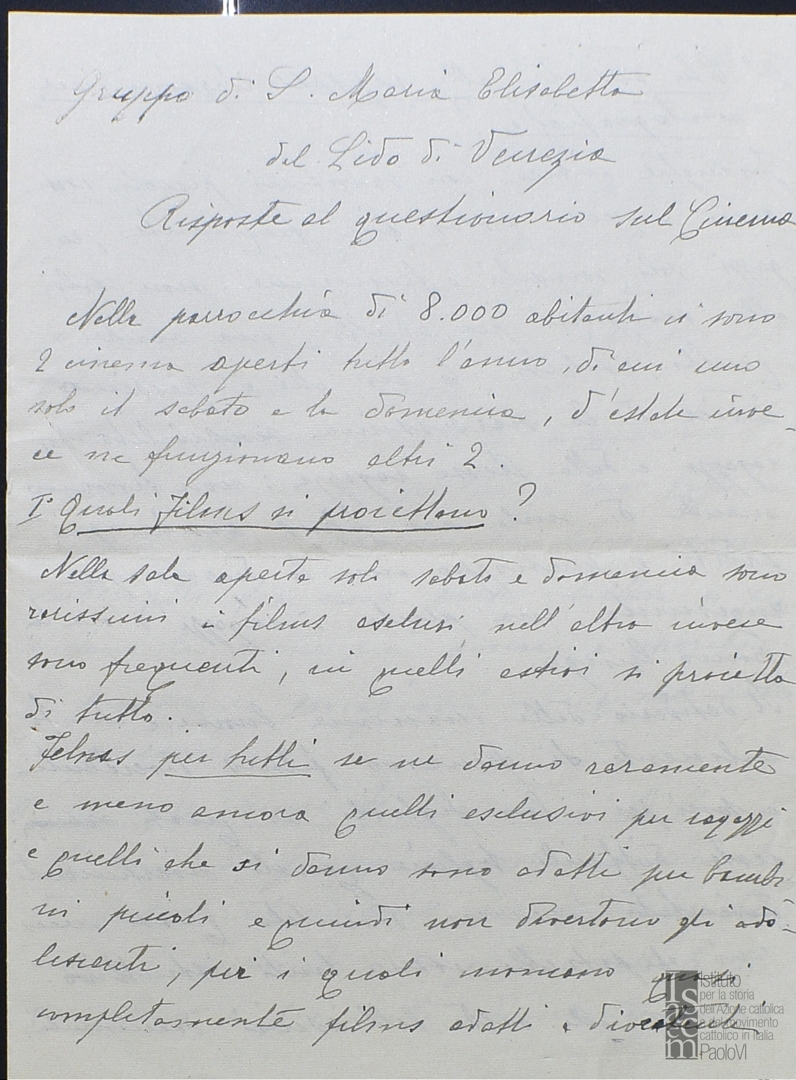 Gruppo di S. Maria Elisabetta
del Lido di Venezia
Risposte al questionario sul Cinema
Nella parrocchia di 8.000 abitanti vi sono
2 cinema aperti tutto l'anno, di cui uno
solo il sabato e la domenica, d'estate inve-
ce ne funzionano altri 2.
I° Quali films si proiettano?
Nella sala aperta solo sabato e domenica sono
rarissimi i films esclusi, nell'altro invece
sono frequenti, in quelli estivi si proietta
di tutto.
Films per tutti se ne danno raramente
e meno ancora quelli esclusivi per ragazzi
e quelli che si danno sono adatti per bambi
ni piccoli e quindi non divertono gli ado-
lescenti, per i quali mancano quasi
completamente films adatti e divertenti
Istituto
per la storia
dell'Azione cattolica
e del movimento
cattolico in Italia
PaoloVI